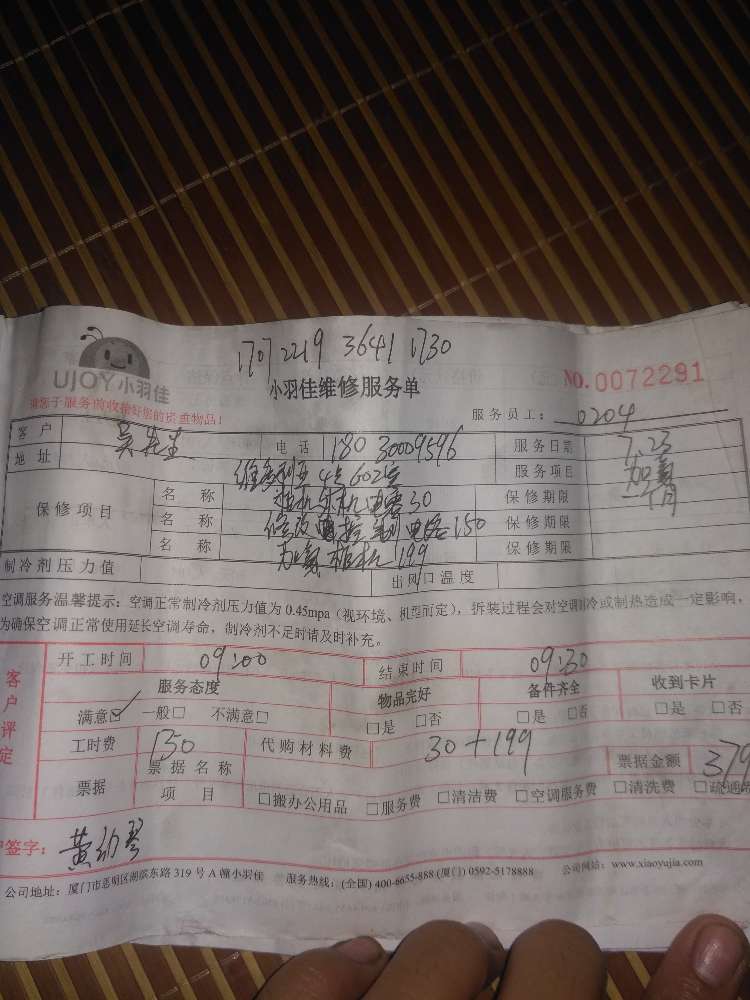 1707 2219 3641 1730
UJOY小羽佳
小羽佳维修服务单
NO.0072291
服务员工： 0204
客户 吴先生 电话 180 30009596 服务日期 7.23
地址 4号602室 服务项目 加氟
保修项目 名称 30 保修期限 一个月
名称 电容150 保修期限
名称 加氟 199 保修期限
制冷剂压力值 出风口温度
空调服务温馨提示：空调正常制冷剂压力值为 0.45mpa（视环境、机型而定），拆装过程会对空调制冷或制热造成一定影响，
为确保空调正常使用延长空调寿命，制冷剂不足时请及时补充。
客户评定
开工时间 09:00 结束时间 09:30
服务态度 物品完好 备件齐全 收到卡片
满意☑ 一般□ 不满意□ □是 □否 □是 □否 □是 □否
工时费 150 代购材料费 30+199 票据金额 379
票据 票据名称
项目 □搬办公用品 □服务费 □清洁费 □空调服务费 □清洗费
签字：
公司地址：厦门市思明区湖滨东路 319 号 A 幢小羽佳 服务热线：(全国) 400-6655-888 (厦门) 0592-5178888 公司网站：www.xiaoyujia.com